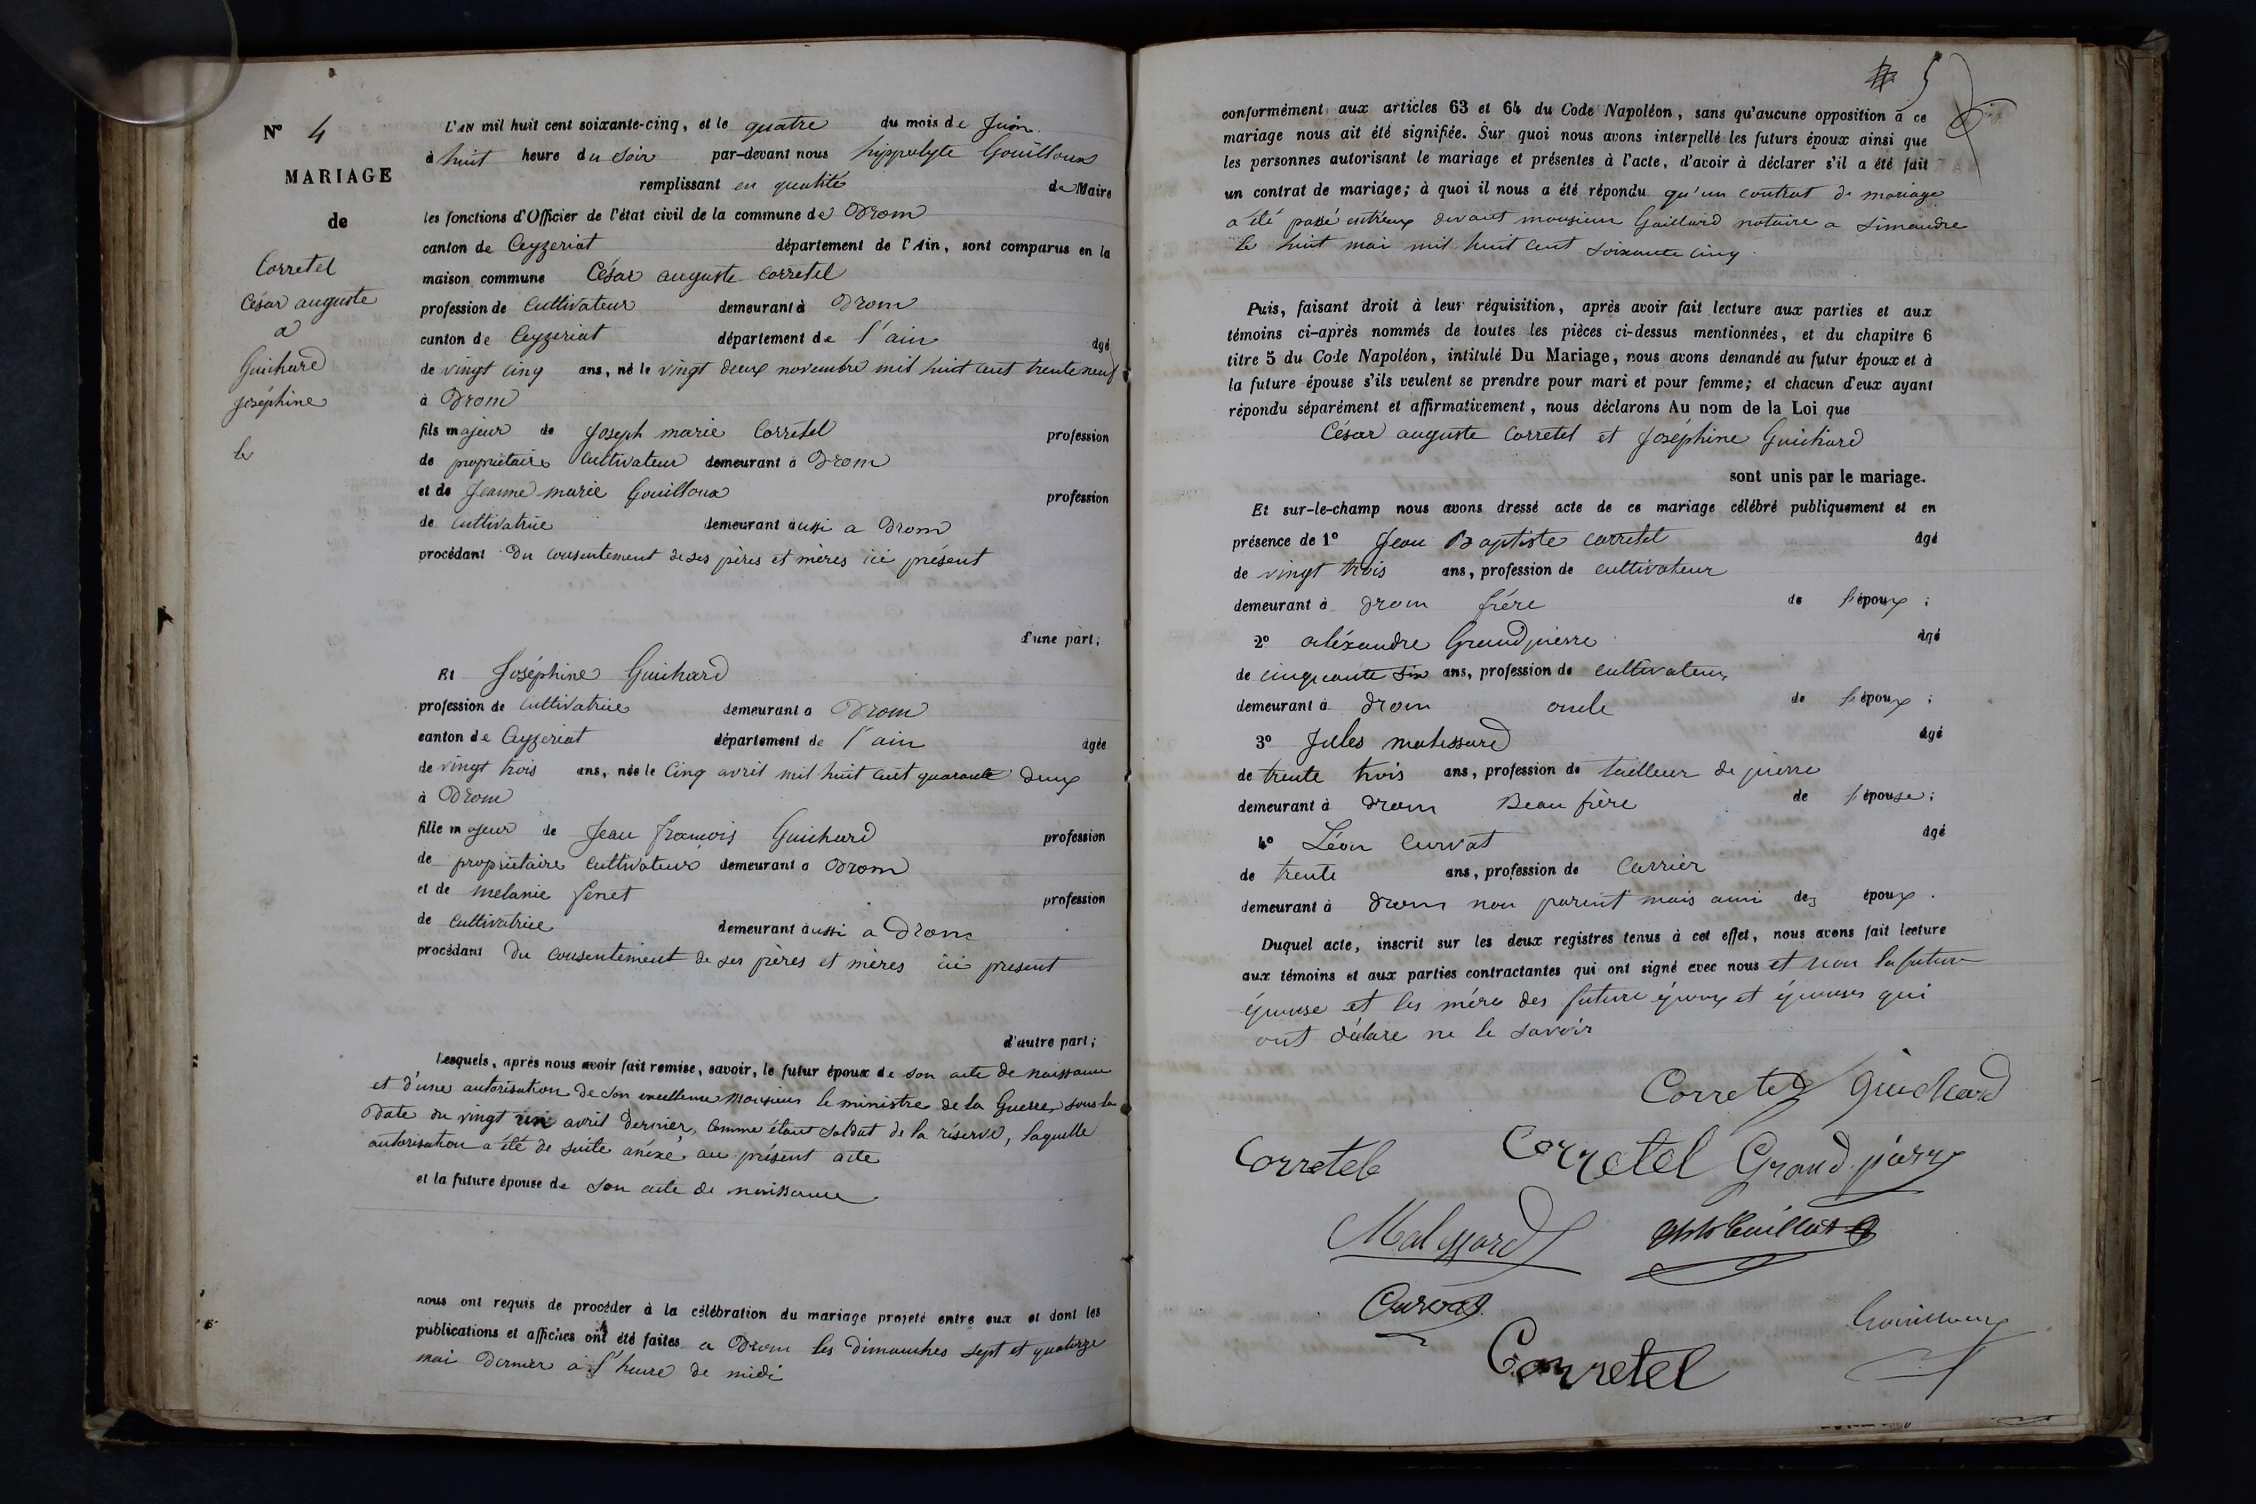 N° 4
MARIAGE
de
Corretel
César auguste
a
Guichard
Joséphine
le
L'AN mil huit cent soixante-cinq, et le quatre du mois de Juin
à huit heure du soir par-devant nous hippolyte Gouilloux
remplissant en qualité de Maire
les fonctions d'Officier de l'état civil de la commune de Drom
canton de Ceyzeriat département de l'Ain, sont comparus en la
maison commune César auguste Corretel
profession de cultivateur demeurant à Drom
canton de Ceyzeriat département de l'ain âgé
de vingt cinq ans, né le vingt deux novembre mil huit cent trente neuf
à Drom
fils majeur de Joseph marie Corretel profession
de propriétaire Cultivateur demeurant à Drom
et de Jeanne marie Gouilloux profession
de cultivatrice demeurant aussi a Drom
procédant Du consentement de ses pères et mères ici présent
d'une part;
Et Joséphine Guichard
profession de cultivatrice demeurant a Drom
canton de Ceyzeriat département de l'ain âgée
de vingt trois ans, née le Cinq avril mil huit cent quarante deux
à Drom
fille majeur de Jean françois Guichard profession
de propriétaire cultivateur demeurant a Drom
et de melanie fenet profession
de cultivatrice demeurant aussi a Drom
procédant Du consentement de ses pères et mères ici present
d'autre part;
Lesquels, après nous avoir fait remise, savoir, le futur époux de son acte de naissance
et d'une autorisation de son excellence Monsieur le ministre de la Guerre, sous la
Date du vingt un avril dernier, Comme étant soldat de la réserve, laquelle
autorisation a été de suite anéxé au présent acte
et la future épouse de son acte de naissance
nous ont requis de procéder à la célébration du mariage projeté entre eux et dont les
publications et affiches ont été faites a Drom les dimanches sept et quatorze
mai dernier a l'heure de midi
5
conformément aux articles 63 et 64 du Code Napoléon, sans qu'aucune opposition à ce
mariage nous ait été signifiée. Sur quoi nous avons interpellé les futurs époux ainsi que
les personnes autorisant le mariage et présentes à l'acte, d'avoir à déclarer s'il a été fait
un contrat de mariage; à quoi il nous a été répondu qu'un contrat de mariage
a été passé entreux devant monsieur Gaillard notaire a simandre
le huit mai mil huit cent soixante cinq
Puis, faisant droit à leur réquisition, après avoir fait lecture aux parties et aux
témoins ci-après nommés de toutes les pièces ci-dessus mentionnées, et du chapitre 6
titre 5 du Code Napoléon, intitulé Du Mariage, nous avons demandé au futur époux et à
la future épouse s'ils veulent se prendre pour mari et pour femme; et chacun d'eux ayant
répondu séparément et affirmativement, nous déclarons Au nom de la Loi que
César auguste Corretel et Joséphine Guichard
sont unis par le mariage.
Et sur-le-champ nous avons dressé acte de ce mariage célébré publiquement et en
présence de 1° Jean Baptiste corretel âgé
de vingt trois ans, profession de cultivateur
demeurant à Drom frére de l'époux;
2° aléxandre Grandpierre âgé
de cinquante six ans, profession de cultivateur
demeurant à Drom oncle de l'époux;
3° Jules malessard âgé
de trente trois ans, profession de tailleur de pierre
demeurant à Drom Beau frère de l'épouse;
4° Léon Curvat âgé
de trente ans, profession de Carrier
demeurant à Drom non parent mais ami des époux.
Duquel acte, inscrit sur les deux registres tenus à cet effet, nous avons fait lecture
aux témoins et aux parties contractantes qui ont signé avec nous et non la future
épouse et les mére des future époux et épouses qui
ont déclare ne le savoir
Corretel Guichard
Corretel Corretel Grandpierre
Malessard
Curvat
Corretel Gouilloux